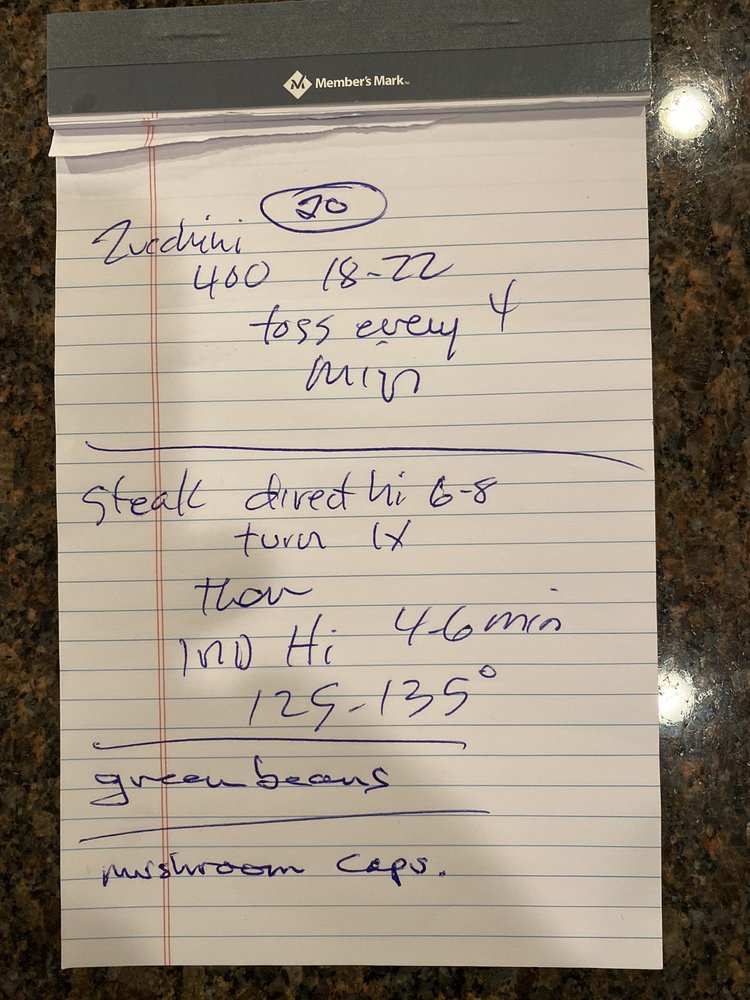 Member's Mark
20
Zucchini
400 18-22
toss every 4
min
Steak direct hi 6-8
turn 1X
then
IND Hi 4-6 min
125-135°
green beans
mushroom caps.